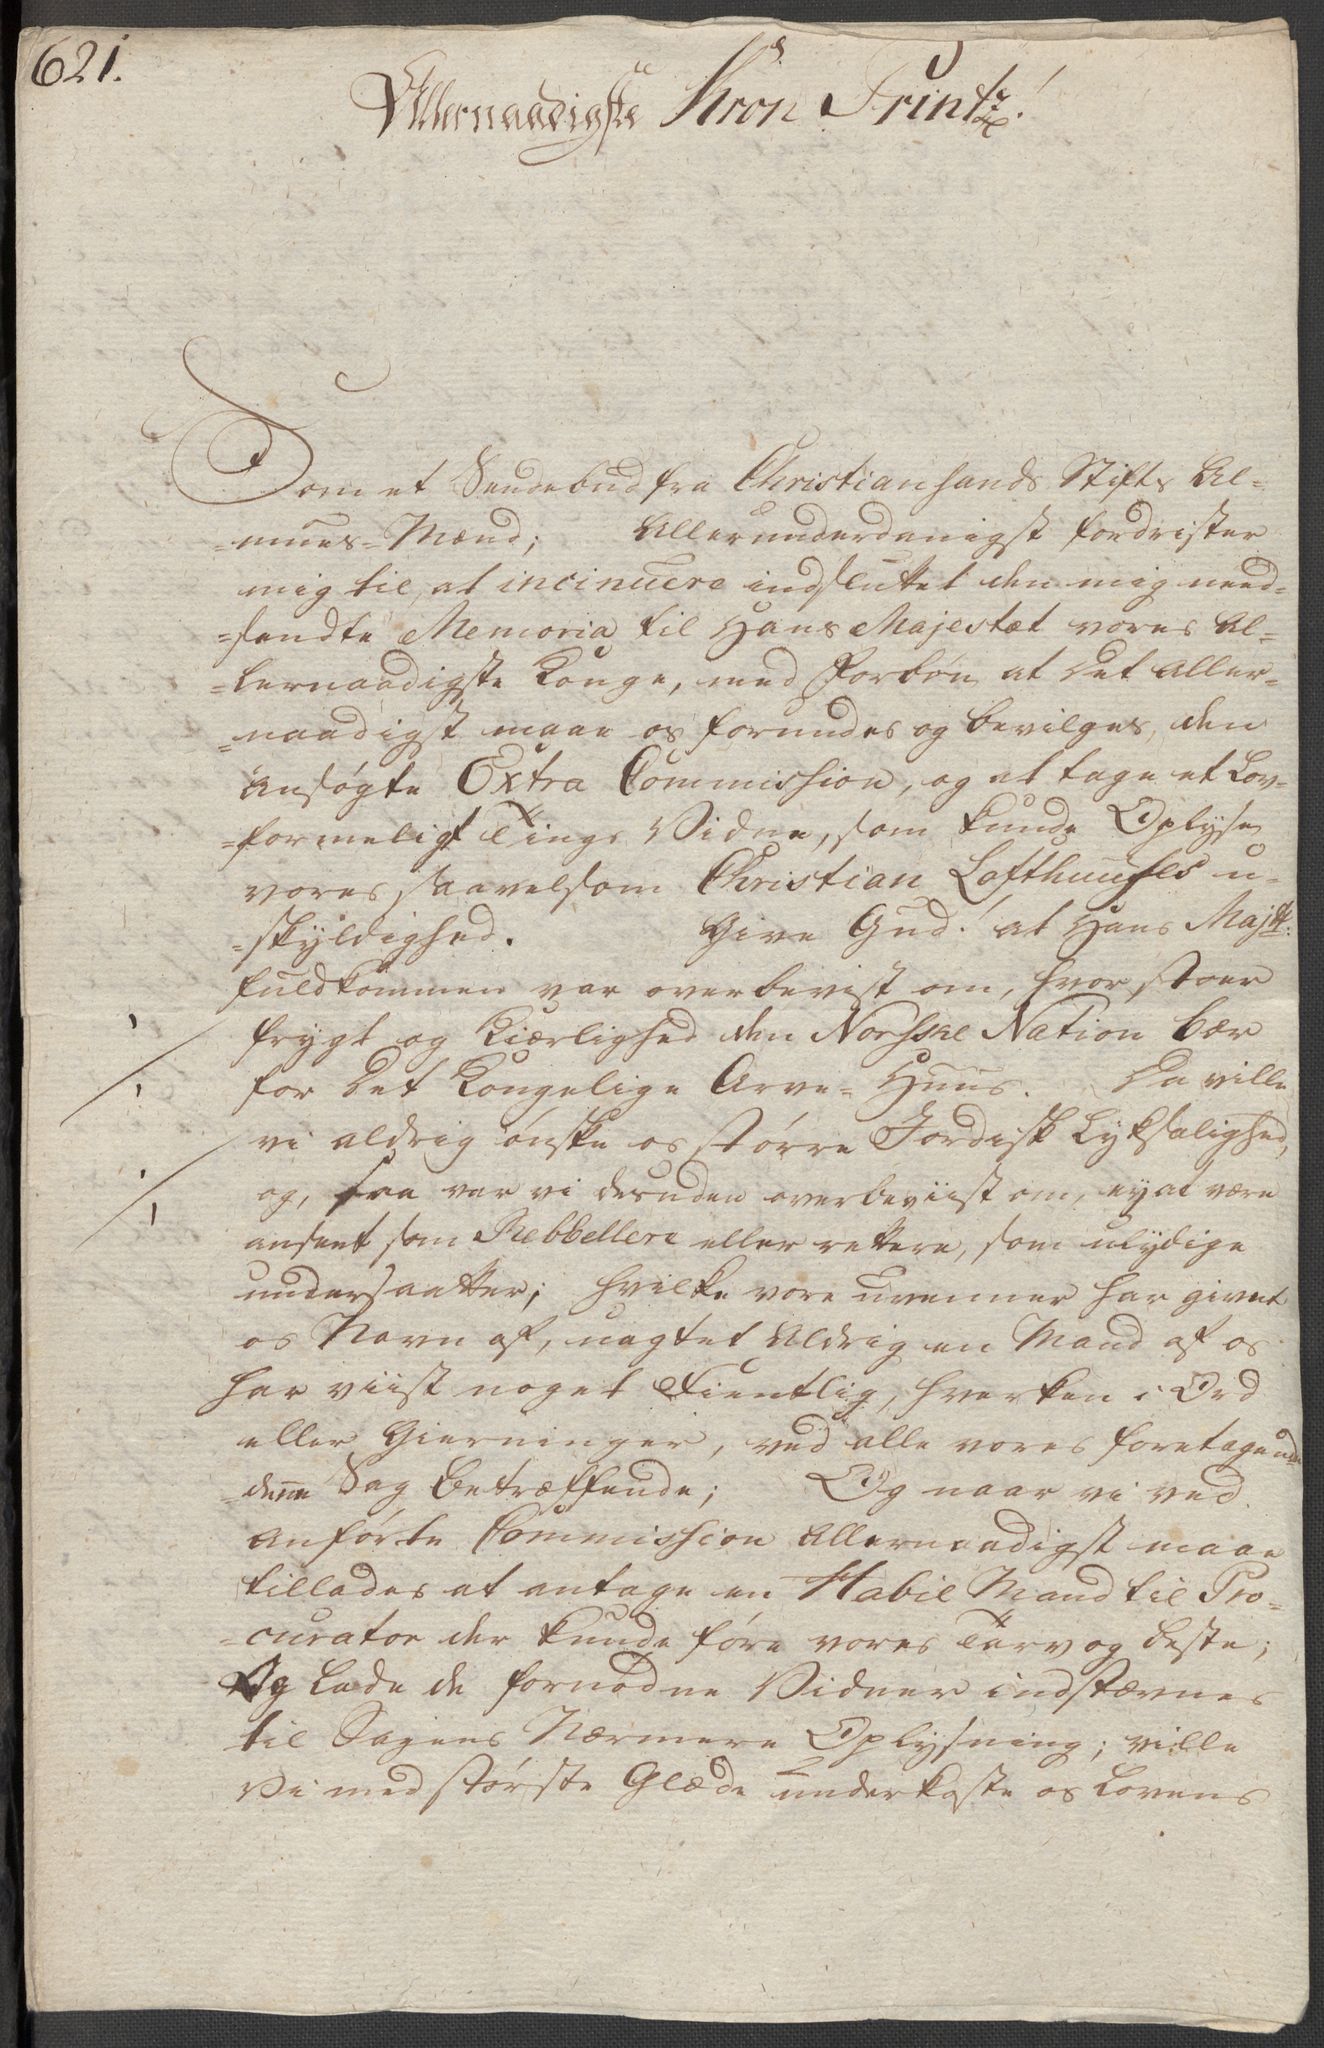 621.
Allernaadigste Kron Printz!
Som et Sendebud fra Christiansands Stifts Al-
-mues-Mænd; Allerunderdanigst fordrister
mig til, at incinuere indsluttet den mig need-
-sendte Memoria til Hans Majestæt vores Al-
-lernaadigste Konge, med Forbøn at det aller-
-naadigst maae os forundes og bevilges, den
ansøgte Extra Commission, og at tage et Lov-
-formeligt Tings Vidne, som kunde Oplyse
vores saavelsom Christian Lofthuuses u-
-skyldighed. Give Gud! at Hans Majtt:
fuldkommen var overbevist om, hvor stoer
frygt og Kiærlighed den Norske Nation bær
for det Kongelige Arve-Huus. Da ville
vi aldrig ønske os større Jordisk Lyksalighed,
og, saa var vi desuden overbeviist om, ey at være
anseet som Rebbellere eller rettere, som ulydige
undersaatter; hvilke vore uvenner har givet
os Navn af, uagtet Aldrig en Mand af os
har viist noget Fientlig, hverken i Ord
eller Gierninger, ved alle vores foretagende
denne Sag betræffende; Og naar vi ved
anførte Commission Allernaadigst maae
tillades at antage en Habil Mand til Pro-
-curator der kunde føre vores Tarv og beste;
Og lade de fornødne Vidner indstævnes
til Sagens Nærmere Oplysning; ville
Vi med største Glæde underkaste os Lovens